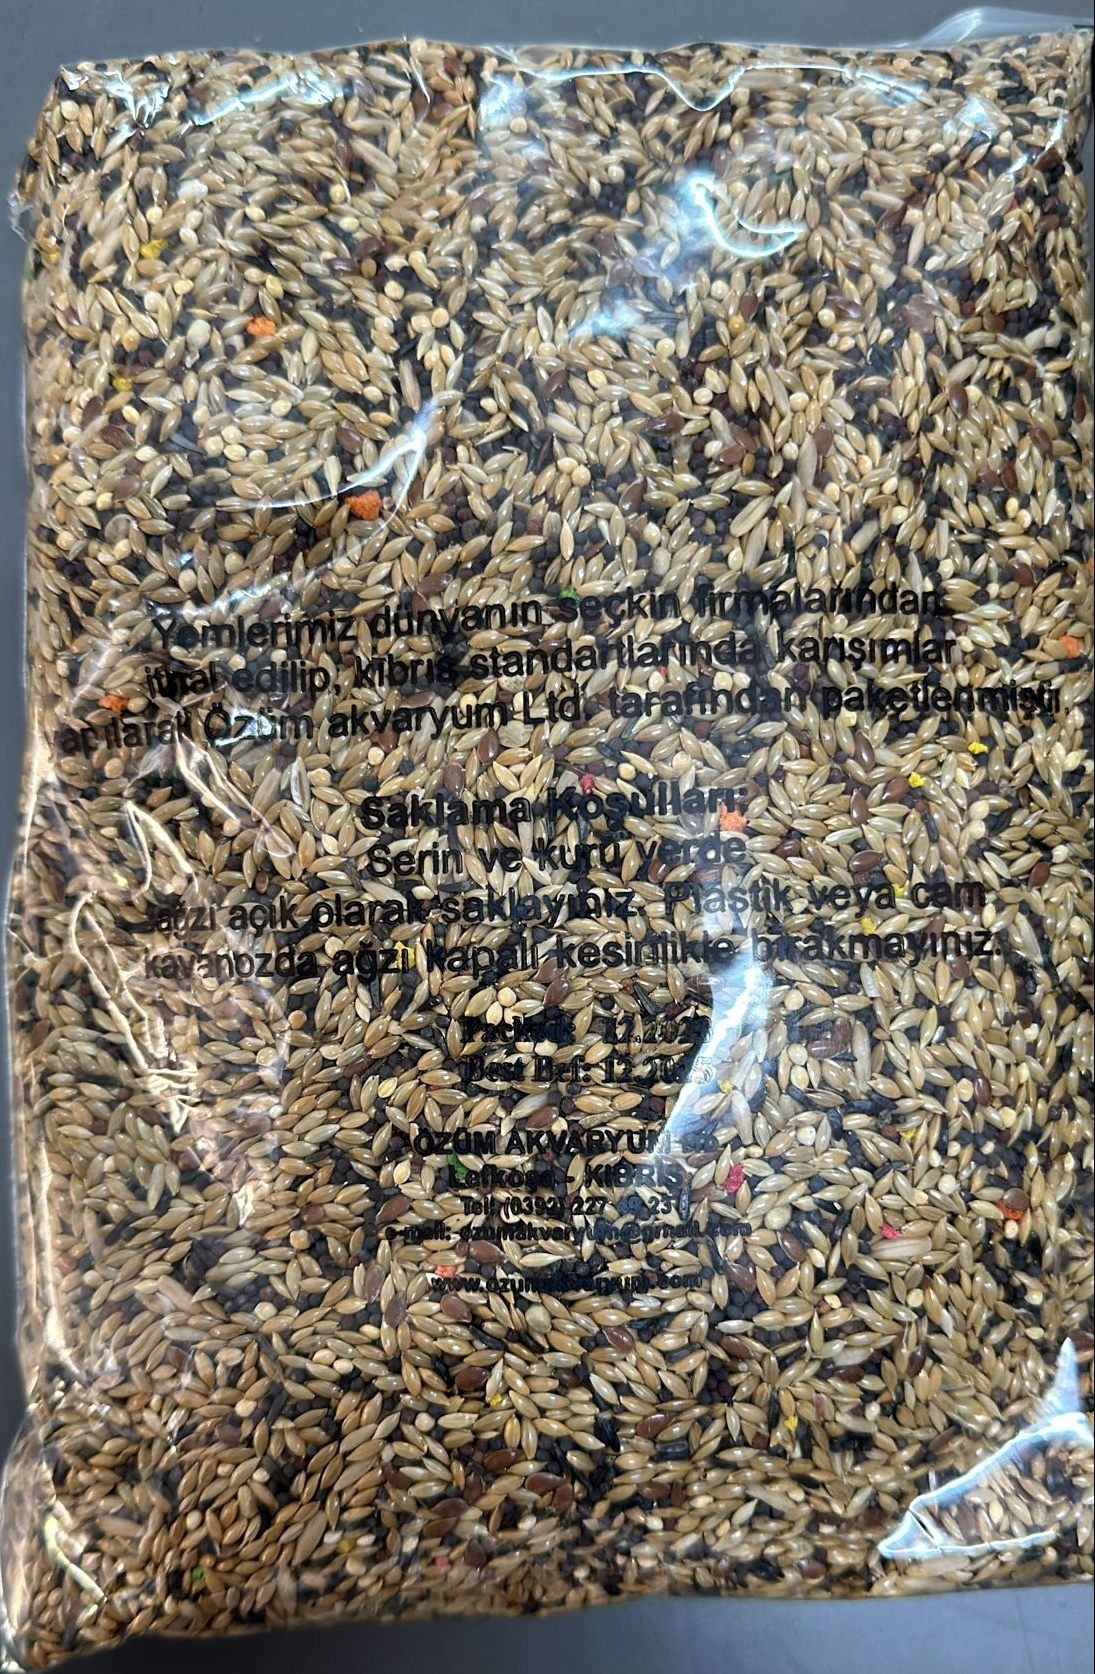 Yemlerimiz dünyanın seçkin firmalarından
ithal edilip, kıbrıs standartlarında karışımlar
yapılarak Özüm akvaryum Ltd. tarafından paketlenmiştir.
Saklama Koşulları:
Serin ve kuru yerde
ağzı açık olarak saklayınız. Plastik veya cam
kavanozda ağzı kapalı kesinlikle bırakmayınız.
Packed:
Best Bef:
ÖZÜM AKVARYUM
Lefkoşa - KIBRIS
Tel: (0392) 227
e-mail: ozumakvaryum@gmail.com
www.ozumakvaryum.com